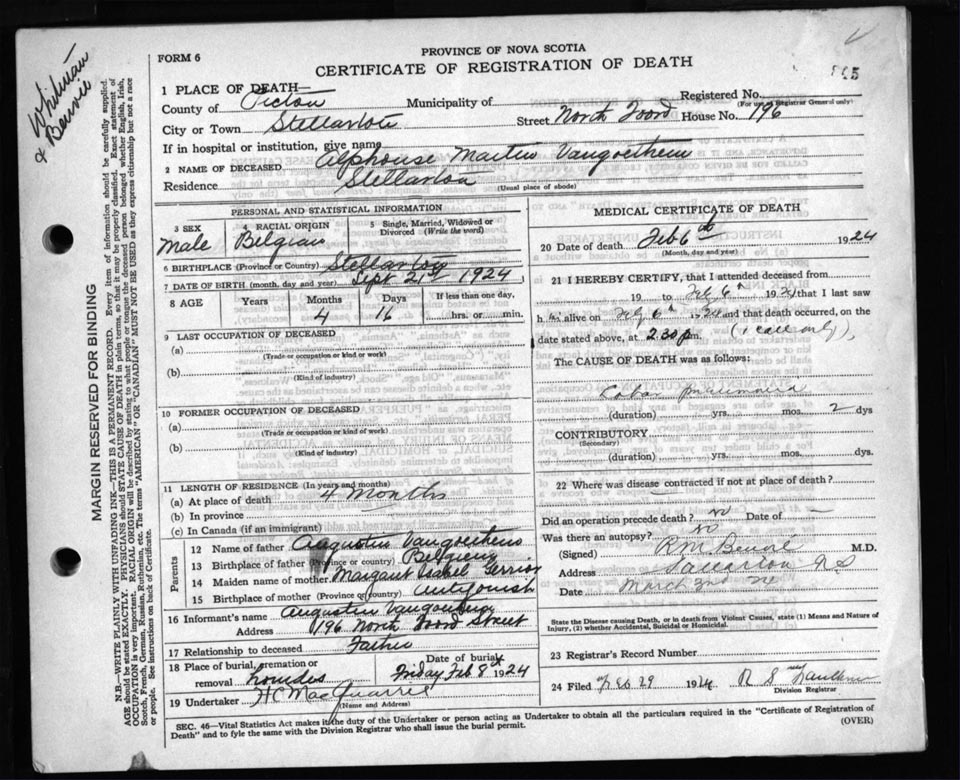 Whitman
& Beaver
FORM 6
PROVINCE OF NOVA SCOTIA
CERTIFICATE OF REGISTRATION OF DEATH
1 PLACE OF DEATH—
Registered No.
(For use of Registrar General only)
County of Pictou Municipality of
City or Town Stellarton Street North Foord House No. 196
If in hospital or institution, give name
2 NAME OF DECEASED Alphonse Martin Vangoethem
Residence Stellarton (Usual place of abode)
PERSONAL AND STATISTICAL INFORMATION
3 SEX 4 RACIAL ORIGIN 5 Single, Married, Widowed or Divorced (Write the word)
Male Belgian
6 BIRTHPLACE (Province or Country) Stellarton
7 DATE OF BIRTH (month, day and year) Sept 21st 1924
8 AGE Years Months Days If less than one day,
4 16 hrs. or min.
9 LAST OCCUPATION OF DECEASED
(a)
(Trade or occupation or kind or work)
(b)
(Kind of industry)
10 FORMER OCCUPATION OF DECEASED
(a)
(Trade or occupation or kind of work)
(b)
(Kind of industry)
11 LENGTH OF RESIDENCE (In years and months)
(a) At place of death 4 Months
(b) In province
(c) In Canada (if an immigrant)
Parents
12 Name of father Augustin Vangoethem
13 Birthplace of father (Province or country) Belgium
14 Maiden name of mother Margaret Isabel
15 Birthplace of mother (Province or country) Antigonish
16 Informant's name Augustin
Address 196 North Foord Street
17 Relationship to deceased Father
18 Place of burial, cremation or removal Date of burial
Friday Feb 8 1924
19 Undertaker H C MacQuarrie
(Name and Address)
MEDICAL CERTIFICATE OF DEATH
20 Date of death Feb 6th 1924
(Month, day and year)
21 I HEREBY CERTIFY, that I attended deceased from
19 to Feb 6th 1924 that I last saw
h alive on Feb 6th 1924 and that death occurred, on
date stated above, at 2.30 p m. (1 call only)
The CAUSE OF DEATH was as follows:
Lobar pneumonia
(duration) yrs. mos. 2 dys
CONTRIBUTORY
(Secondary)
(duration) yrs. mos. dys
22 Where was disease contracted if not at place of death?
Did an operation precede death? no Date of —
Was there an autopsy? no
(Signed) M.D.
Address Stellarton N S
Date March 2nd
State the Disease causing Death, or in death from Violent Causes, state (1) Means and Nature of Injury, (2) whether Accidental, Suicidal or Homicidal.
23 Registrar's Record Number
24 Filed Feb 29 1924
Division Registrar
SEC. 46—Vital Statistics Act makes it the duty of the Undertaker or person acting as Undertaker to obtain all the particulars required in the "Certificate of Registration of
Death" and to fyle the same with the Division Registrar who shall issue the burial permit. (OVER)
MARGIN RESERVED FOR BINDING
N.B.—WRITE PLAINLY WITH UNFADING INK—THIS IS A PERMANENT RECORD. Every item of information should be carefully supplied.
AGE should be stated EXACTLY. PHYSICIANS should STATE CAUSE OF DEATH in plain terms, so that it may be properly classified. Exact statement of
OCCUPATION is very important. RACIAL ORIGIN will be described by stating to what people or tongue the deceased person belonged whether English, Irish,
Scotch, French, German, Russian, Ruthenian, etc. The terms "AMERICAN" or "CANADIAN" MUST NOT BE USED as they express citizenship but not a race
or people. See instructions on back of Certificate.